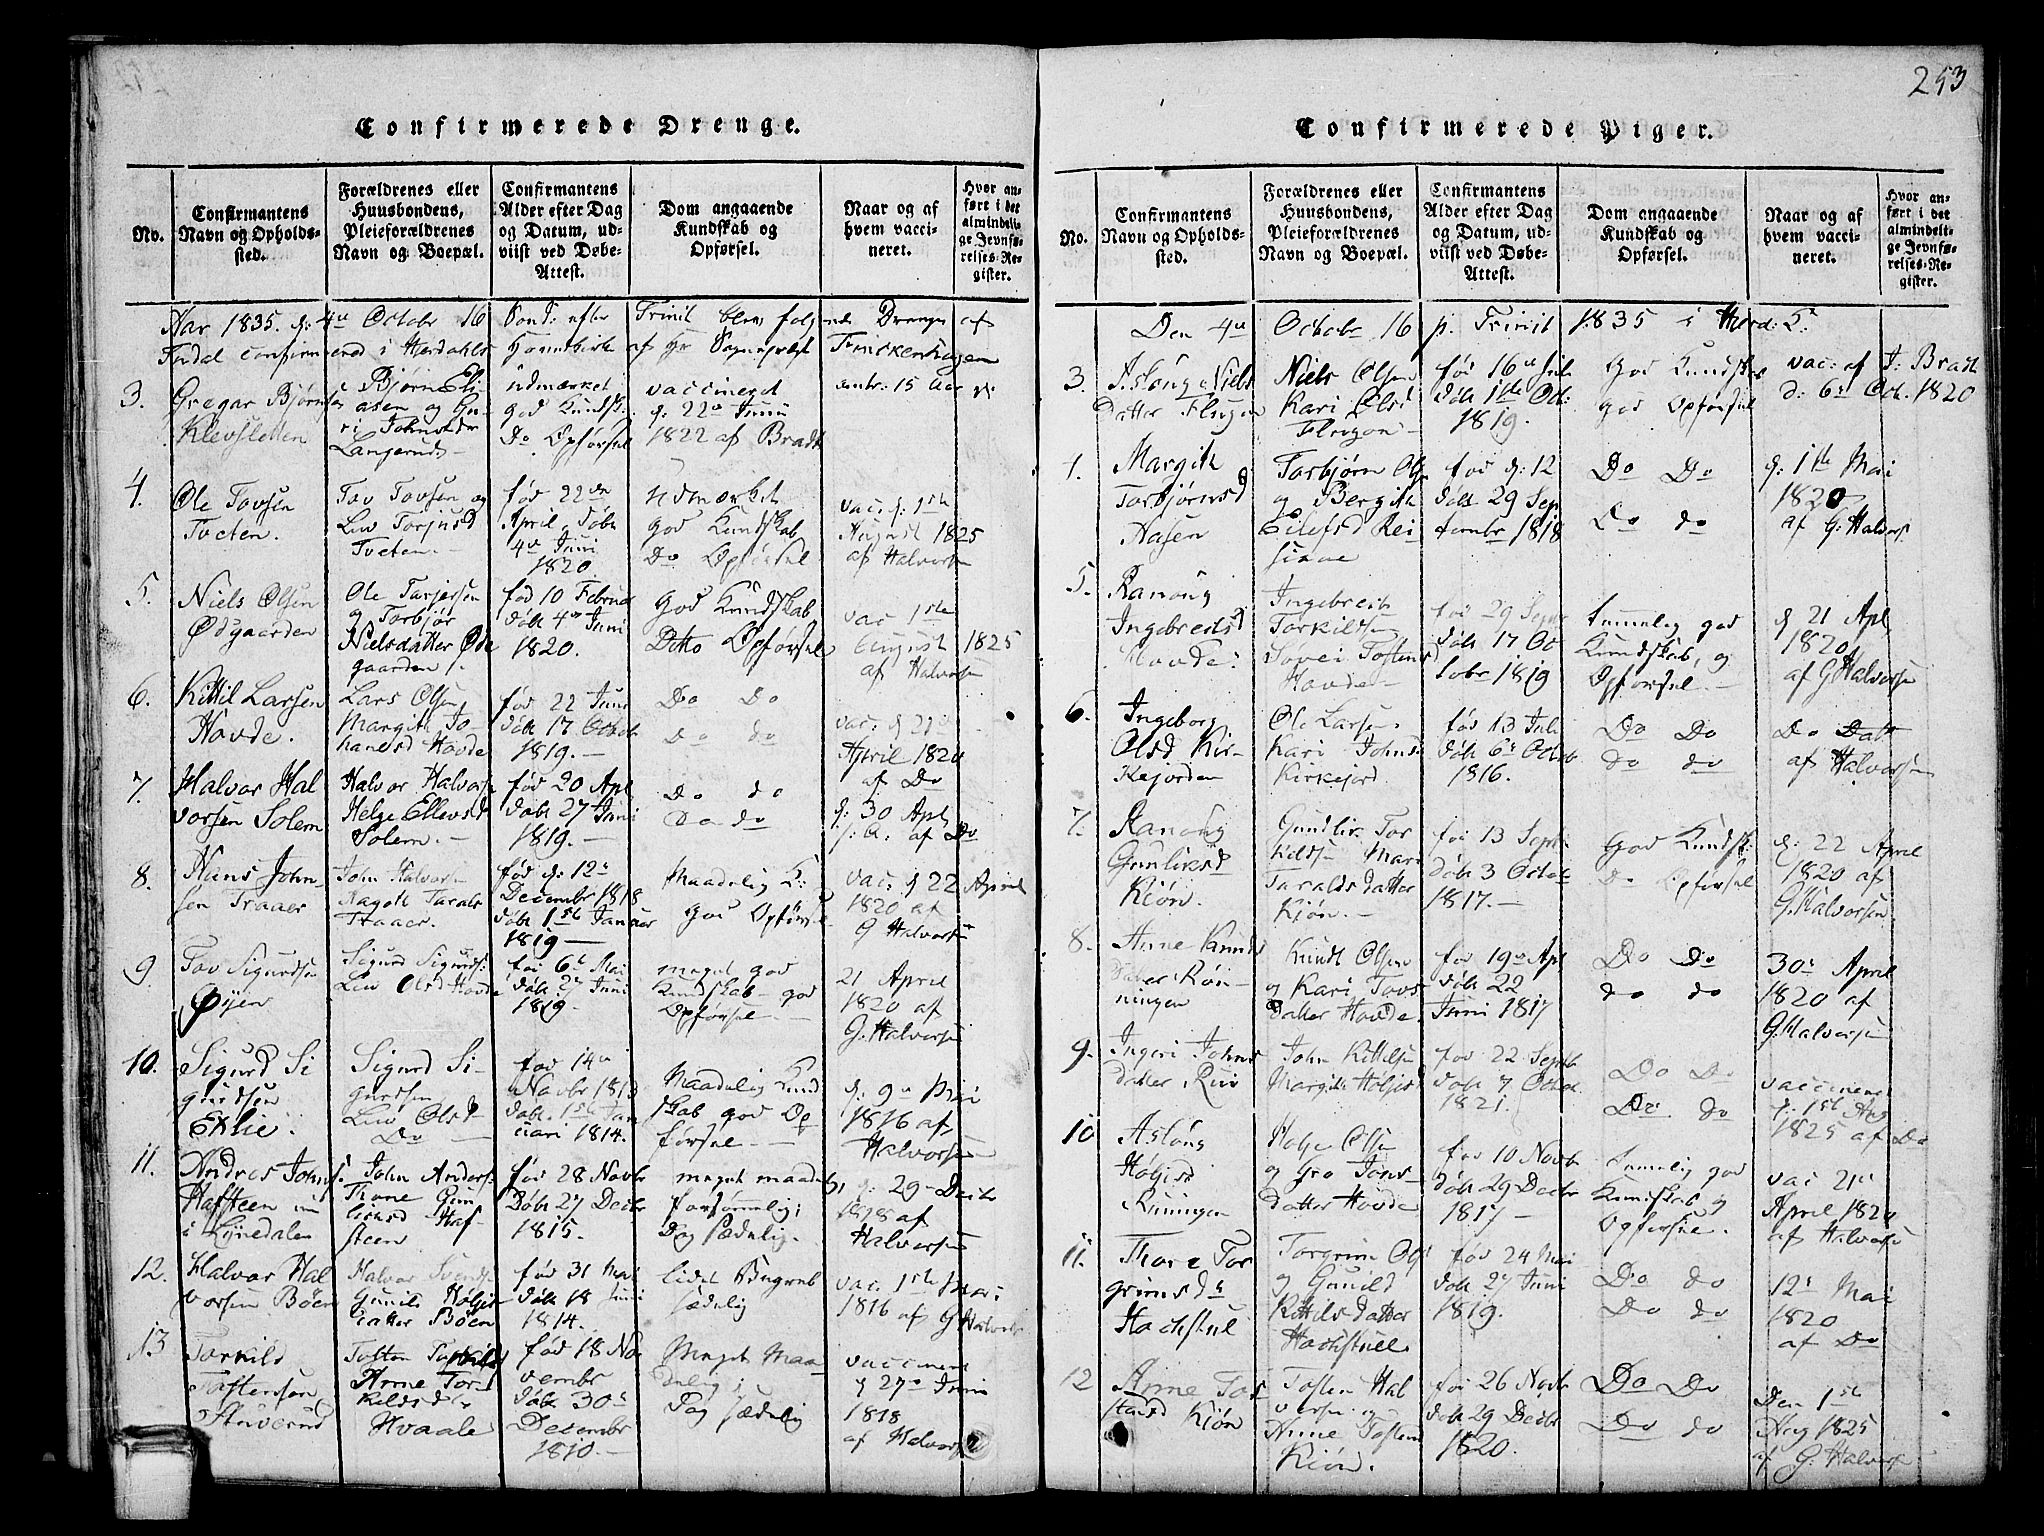 253
Confirmerede Drenge.
No.
Confirmantens Navn og Opholds-sted.
Forældrenes eller Huusbondens, Pleieforældrenes Navn og Boepæl.
Confirmantens Alder efter Dag og Datum, ud-viist ved Døbe-Attest.
Dom angaaende Kundskab og Opførsel.
Naar og af hvem vacci-neret.
Hvor an-ført i det almindeli-ge Jevnfø-relses-Re-gister.
Aar 1835. d: 4de Octobr 16 Sond: efter Trinit blev følgende Drenge af
confirmered i Hjerdahls af Hr Sognepræst Frickenhagen
3. Gregar Bjørns Klevsletten
Bjørn Eliasen og Guri Johnsdr Langerud
udmærket god Kundsk: Do Opførsel
vaccineret d: 22de Junii 1822 af Bradt
4. Ole Tovsen Tveten.
Tov Tovsen og Liv Torjusd Tveten.
fød 22de April, døbt 4de Juni 1820.
udmærket god Kundskab Do Opførsel
vac: d: 1ste August 1825 af Halvorsen
5. Niels Olsen Ødgaarden
Ole Tarjersen og Torbjør Nielsdatter Ødegaarden.
fød 10 Februar døbt 4de Juni 1820.
God Kundskab Ditto Opførsel
vac 1ste August 1825 af Halvorsen
6. Kittil Larsen Hovde.
Lars Olsen Margith Johanesd Hovde
fød 22 Juni døbt 17 Octob 1819.
Do Do
Do do
vac: d 22de April 1820 af Do
7. Halvor Halvorsen Solem
Halvor Halvors Helge Ellevsd Solem.
fød 20 Apl døbt 27 Juni 1819.
Do do
Do do
d: 30 Apl s: A. af Do
8. Hans Johnsen Traaer
John Halvorsen Tarals Traaer.
fød d: 12te Decembr 1818 døbt 1ste Januar 1819
Maadelig K: god Opførsel
vac: d 22 April 1820 af G Halvorsen
9. Tov Sigurdsen Øyen
Sigurd Sigurds: Liv Olsd Hovde
fød 6te Mai døbt 27 Juni 1819.
meget god Kundskab god Opførsel
21 April 1820 af G. Halvorsen
10. Sigurd Sigurdsen Exlie.
Sigurd Sigurdsen Liv Olsd Do
fød 14de Novbr 1813 døbt 1ste Januari 1814.
Maadelig Kundskab god Opførsel
d: 9de Mai 1816 af Halvorsen
11. Andres Johns: Hafsteen i Lijnedalen
John Anders: Thone Gunliksd Hafsteen
fød 28 Novbr Døbt 27 Decbr 1815.
meget maadel: forsømmelig; Dog sædelig.
d: 29 Decbr af Halvorsen
12. Halvor Halvorsen Bøen
Halvor Svends Gunild Høljesdatter Bøen
fød 31 Mai døbt 18 Juni 1814.
lidet Begreb sædelig
vac: 1ste Mai 1816 af G Halvors
13 Torkild Tostensen
Tosten Torkilds Anne Torkildsd Hvaale
fød 18 November døbt 30te Decembr 1810.
Meget Maadelig; Dog sædelig
vaccineret d 27de Juni 1818 af Halvors
Confirmerede Piger.
No.
Confirmantens Navn og Opholds-sted.
Forældrenes eller Huusbondens, Pleieforældrenes Navn og Boepæl.
Confirmantens Alder efter Dag og Datum, ud-viist ved Døbe-Attest.
Dom angaaende Kundskab og Opførsel.
Naar og af hvem vacci-neret.
Hvor an-ført i det almindeli-ge Jevnfø-relses-Re-gister.
Den 4de Octobr 16 p. Trinit 1835 i Hjerd: K.
3. Asloug Nielsdatter Flugon
Niels Olsen Kari Olsd Flugon
fød 16de Juli døbt 1ste Oct: 1819.
God Kundskab god Opførsel
vac: af J: Bradt d: 6te Oct. 1820
4. Margith Torbjørnsd Aasen
Torbjørn Olsen og Bergith Eilefsd
fød d: 12 døbt 29 September 1818
Do Do
Do do
d: 1ste Mai 1820 af G: Halvors
5. Ranoug Ingebretsd Hovde.
Ingebreth Torkildsen Søvei Tostensd Hovde
fød 29 Septr døbt 17 October 1819
temmelig god Kundskab, og Opførsel.
d 21 Apl 1820 af G Halvorsen
6. Ingeborg Olsd Kirkejorden
Ole Larsen Kari Johnsd Kirkejord.
fød 13 Juli døbt 6te Octob 1816.
Do Do
do do
Do Dato af Halvorsen
7. Ranoug Gunliksd Kiøn.
Gundlik Torkildsen Mari Taraldsdatter Kjøn.
fød 13 Septr døbt 3 Octob 1817.
God Kundsk: Do Opførsel
d: 22 April 1820 af G. Halvorsen
8. Anne Knudsdatter Rønningen
Knudt Olsen og Kari Tovsdatter Hovde.
fød 19de Apl døbt 22 Juni 1817
Do Do
do do
30te April 1820 af G. Halvorsen
9. Ingeri Johnsdatter Ruv
John Kittelsen Margith Høljesd
fød 22 Septb døbt 7 Octob 1821.
Do Do
Do do
vaccineret d: 1ste Aug 1825 af Do
10 Aslong Høljesd Runingen
Holje Olsen og Gro Jonsdatter Hovde
fød 10 Novbr døbt 29 Decbr 1817
temmelig god Kundskab og Opførsel.
vac 21de April 1820 af Halvorsen
11. Thore Torgrimsdr Hachstul
Torgrim Ols og Gunild Kittilsdatter Hachstul
fød 24 Mai døbt 27 Juni 1819.
Do do
Do do
12te Mai 1820 af Do
12 Anne Tostensd Kjøn
Tosten Halvorsen og Anne Tostensd Kiøn.
fød 26 Novbr døbt 29 Decbr 1820.
Do Do
Do do
Den 1ste Aug 1825 af G. Halvorsen